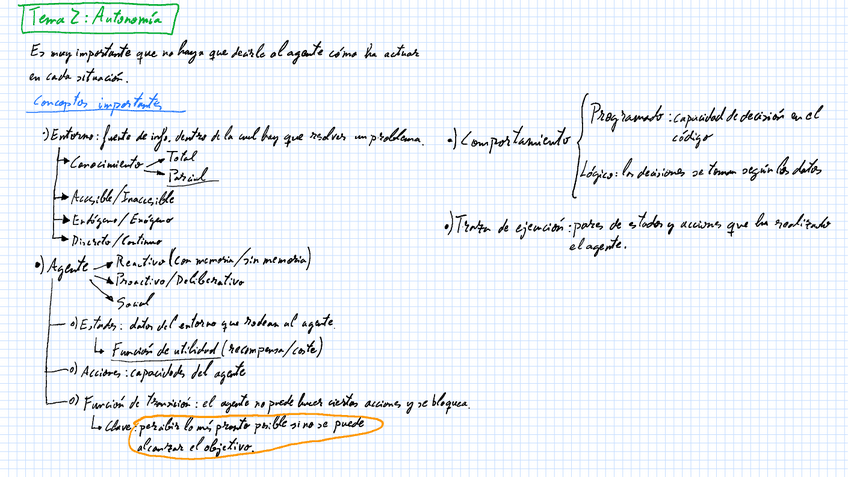 Tema 2: Autonomía
Es muy importante que no haya que decirle al agente cómo ha actuar
en cada situación.
Conceptos importantes
·) Entorno: fuente de info. dentro de la cual hay que resolver un problema.
→ Conocimiento → Total
→ Parcial
→ Accesible/Inaccesible
→ Endógeno/Exógeno
→ Discreto/Continuo
·) Agente → Reactivo (con memoria/sin memoria)
→ Proactivo/Deliberativo
→ Social
o) Estados: datos del entorno que rodean al agente.
↳ Función de utilidad (recompensa/coste)
o) Acciones: capacidades del agente
o) Función de transición: el agente no puede hacer ciertas acciones y se bloquea.
↳ Clave: percibir lo más pronto posible si no se puede
alcanzar el objetivo.
·) Comportamiento
Programado: capacidad de decisión en el
código
Lógico: las decisiones se toman según los datos
·) Traza de ejecución: pares de estados y acciones que ha realizado
el agente.